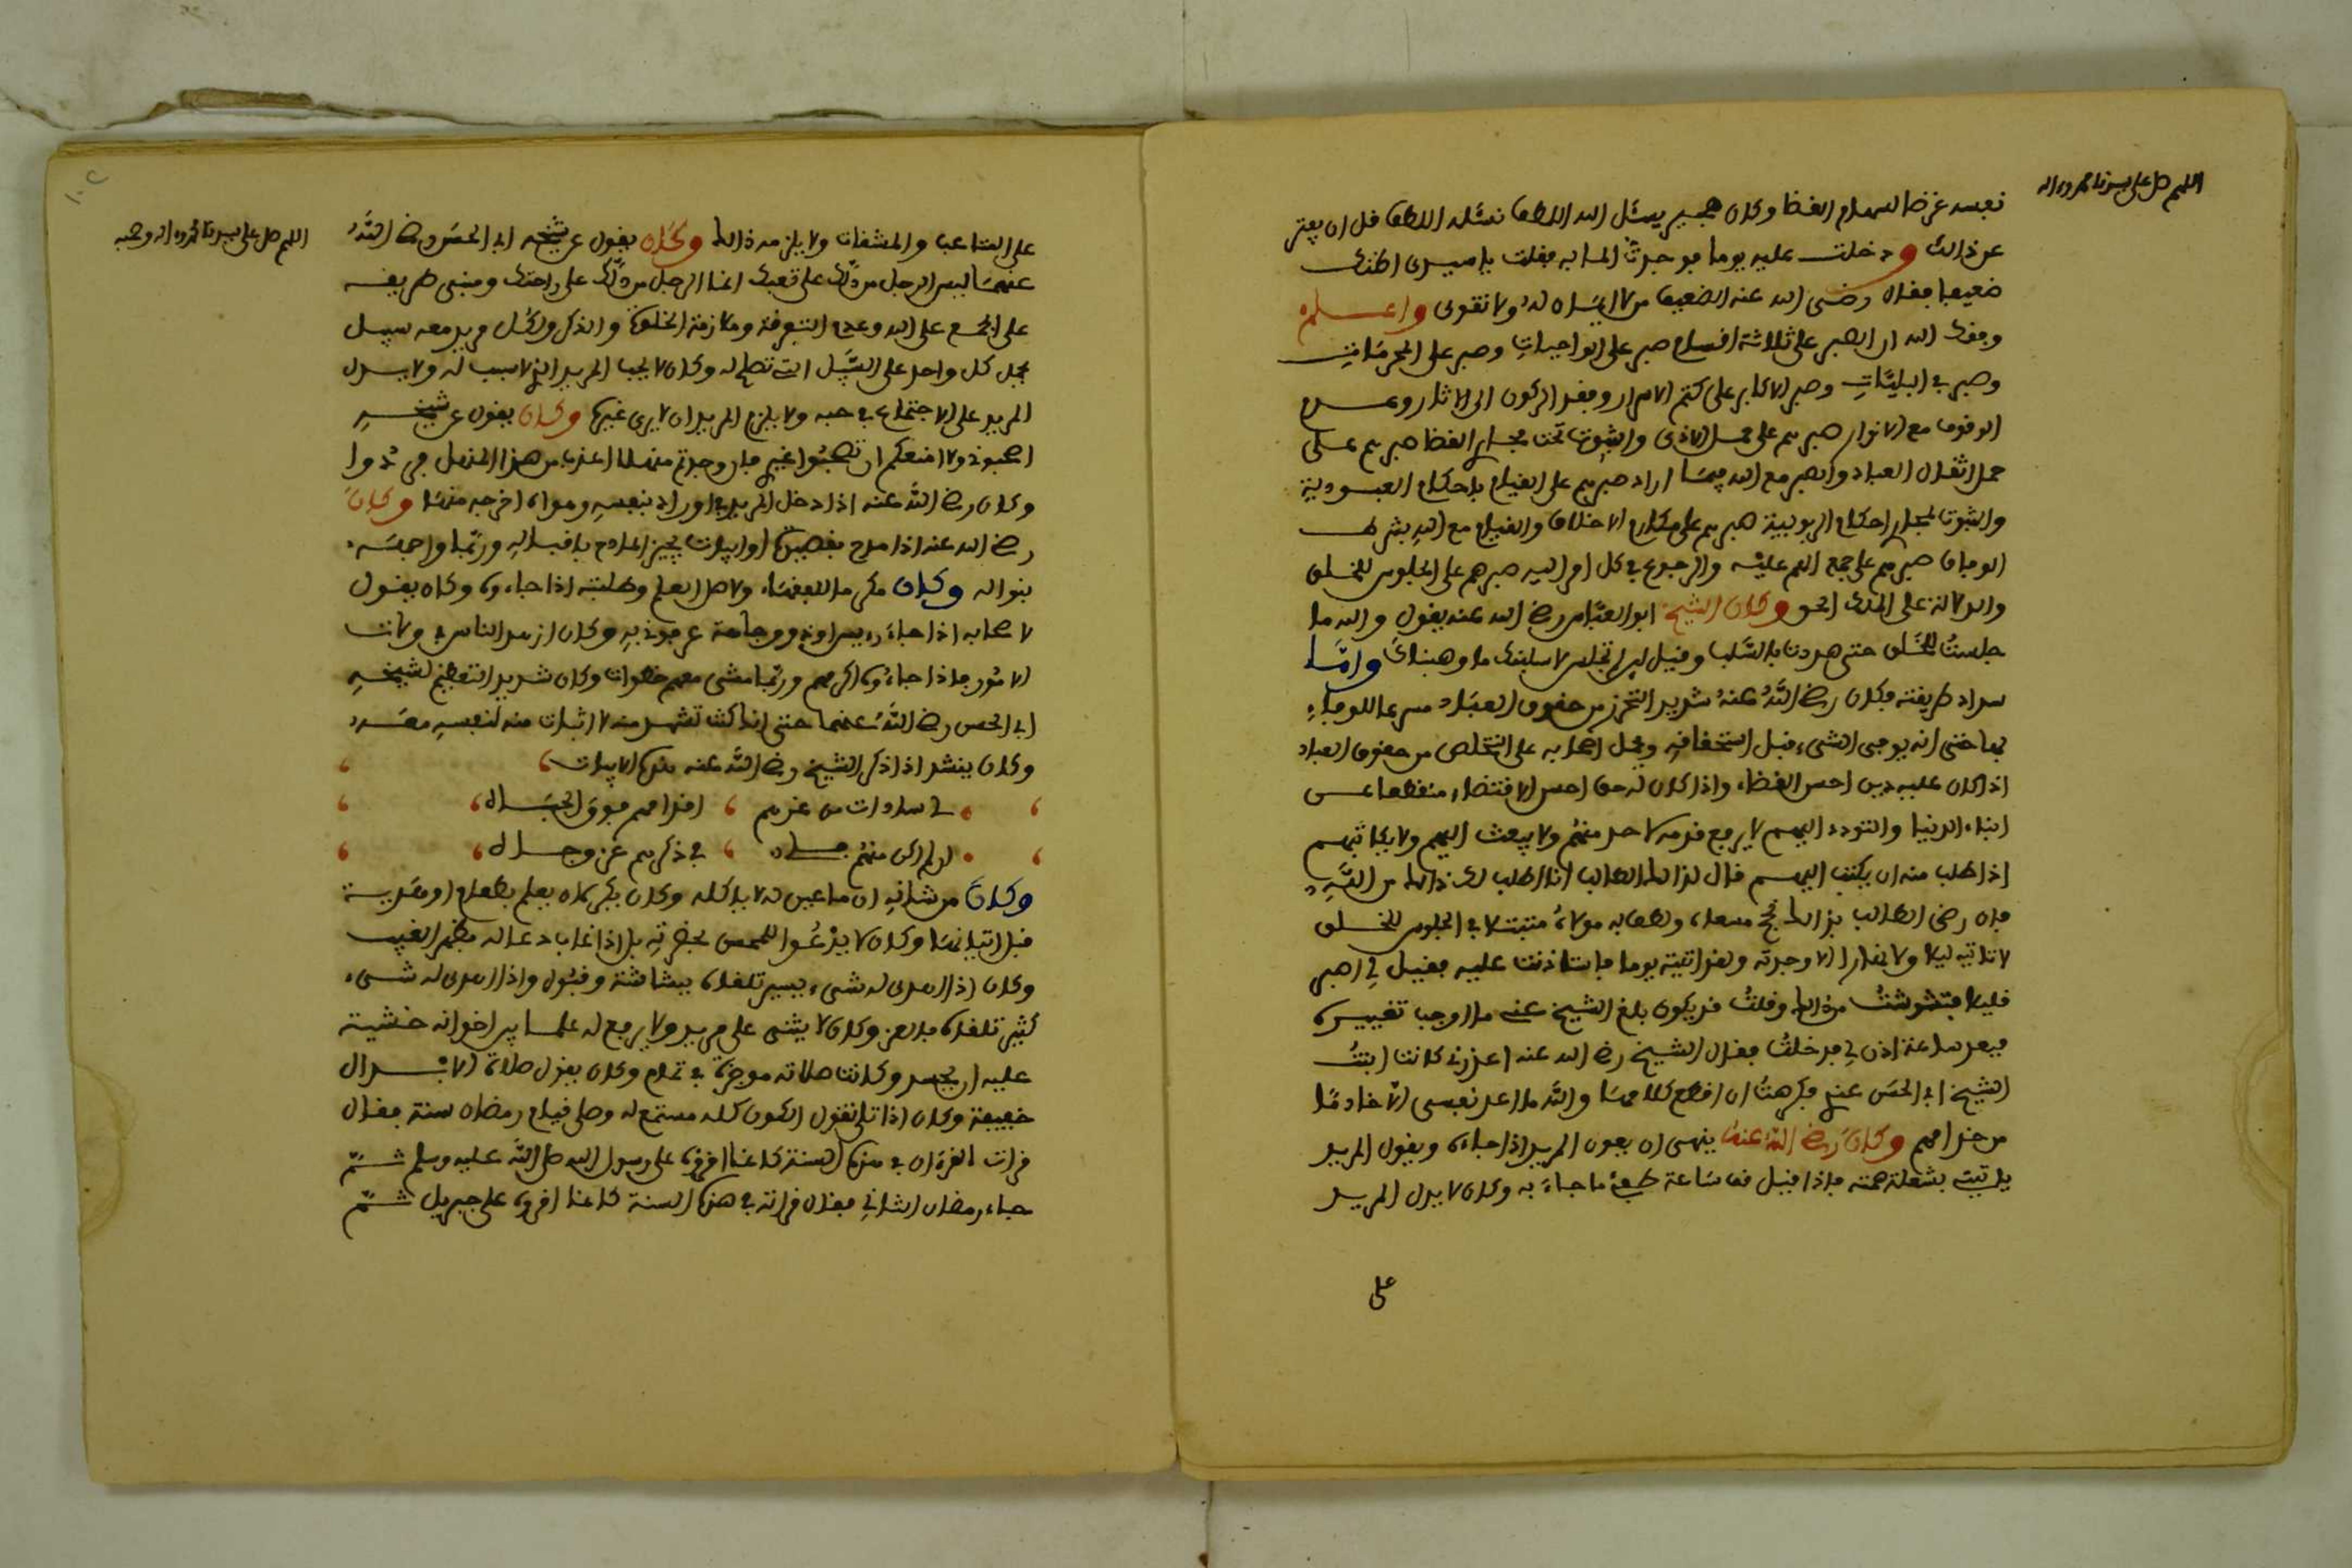 اللهم صل على سيدنا محمد واله
نفسه غرضا لسهام القضا وكان هجير يسئل الله اللطف نسئله اللطف قل ان يفتر
عن ذالك ودخلت عليه يوما فوجدت الما به فقلت يا سيدى اظنك
ضعيفا فقال رضى الله عنه الضعيف من لا ايمان له ولا تقوى واعلم
وفقك الله ان الصبر على ثلاثة اقسام صبر على الواجبات وصبر على المحرمات
وصبر في البليات وصبر الاكابر على كتم الاسرار وفقد الركون الى الاثار وعدم
الوقوف مع الانوار صبرهم على حمل الاذى والثبوت تحت مجار القضا صبرهم على
حمل اثقال العباد والصبر مع الله فيما اراد صبرهم على القيام باحكام العبودية
والثبوت لمجار احكام الربوبية صبرهم على مكارم الاخلاق والقيام مع الله بشرط
الوفاق صبرهم على جمع الهم عليه والرجوع في كل امر اليه صبرهم على الجلوس للخلق
والدلالة على الملك الحق وكان الشيخ ابو العباس رضي الله عنه يقول والله ما
جلست للخلق حتى هددت بالسلب وقيل لي لين لم تجلس لاسلبنك ما وهبناك واما
سداد طريقته فكان رضي الله عنه شديد التحرز من حقوق العباد مسرعا للوفاء
بها حتى انه يوفى الشىء قبل استحقاقه ويحمل اصحابه على التخلص من حقوق العباد
اذا كان عليه دين احسن القضاء واذا كان له حق احسن الاقتضاء منقطعا عن
ابناء الدنيا والتودد اليهم لا يرفع قدمه لاحد منهم ولا يبعث اليهم ولا يكاتبهم
اذا طلب منه ان يكتب اليهم قال لذالك الطالب انا اطلب لك ذالك من الله
فان رضى الطالب بذالك نجح مسعاه ولطف به مولاه منبتلا في الجلوس للخلق
لا تاتيه ليلا ولا نهارا الا وجدته ولقد اتيته يوما فاستاذنت عليه فقيل لي اصبر
قليلا فتشوشت من ذالك وقلت قد يكون بلغ الشيخ عني ما اوجب تغييره
فبعد ساعة اذن لي فدخلت فقال الشيخ رضي الله عنه اعذرني كانت ابنت
الشيخ ابي الحسن عندي فكرهت ان اقطع كلامها والله ما اعد نفسى الا خادما
من خدامهم وكان رضي الله عنه ينهى ان يعوق المريد اذا جاءه ويقول المريد
ياتي بشعلة همته فاذا قيل قف ساعة طفى ما جاء به وكان لا يدل المريد
على
اللهم صل على سيدنا محمد واله وصحبه
على المتاعب والمشقات ولا يلزمه ذالك وكان يقول عن شيخه ابي الحسن رضي الله
عنهما ليس الرجل من دلك على تعبك انما الرجل من دلك على راحتك ومبنى طريقه
على الجمع على الله وعدم التفرقة وملازمة الخلوة والذكر ولكل مريد معه سبيل
يحمل كل واحد على السبيل التي تصلح له وكان لا يحب المريد الذي لا سبب له ولا يدل
المريد على الاجتماع في حبه ولا يلزم المريد ان لا يرى غيره وكان يقول عن شيخه
اصحبوني ولا امنعكم ان تصحبوا غيري فان وجدتم منهلا اعذب من هذا المنهل فردوا
وكان رضي الله عنه اذا دخل المريد في اوراد بنفسه وهواه اخرجه منها وكان
رضي الله عنه اذا مدح بقصيدة او ابيات يجيز المادح باقباله وربما واجهه
بنواله وكان مكرما للفقهاء ولاهل العلم وطلبته اذا جاءوه وكان يقول
لاصحابه اذا جاء رءيس او ذو وجاهة عرفوني به وكان ازهد الناس في ولات
الامور فاذا جاءوه اكرمهم وربما مشى معهم خطوات وكان شديد التعظيم لشيخه
ابي الحسن رضي الله عنهما حتى انك كنت تشهد منه لا اثبات منه لنفسه معه
وكان ينشد اذا ذكر الشيخ رضي الله عنه هذه الابيات
لي سادات من عزهم اقدامهم فوق الجباه
ان لم اكن منهم فلي في ذكرهم عز وجاه
وكان من شانه ان ما عين له لا ياكله وكان يكره ان يعلم بطعام او هدية
قبل اتيانها وكان لا يدعوا للمحسن بحضرته بل اذا غاب دعا له بظهر الغيب
وكان اذا اهدى له شىء يسير تلقاه ببشاشة وقبول واذا اهدى له شىء
كثير تلقاه بالعز وكان لا يثنى على مريد ولا يرفع له علما بين اخوانه خشية
عليه ان يحسد وكانت صلاته موجزة في تمام وكان يقول صلاة الابدال
خفيفة وكان اذا تلى تقول الكون كله مستمع له وصلى قيام رمضان سنة فقال
قرات القرءان في هذه السنة كانما اقرؤه على رسول الله صلى الله عليه وسلم ثم
جاء رمضان الثاني فقال قراته في هذه السنة كانما اقرءه على جبريل ثم